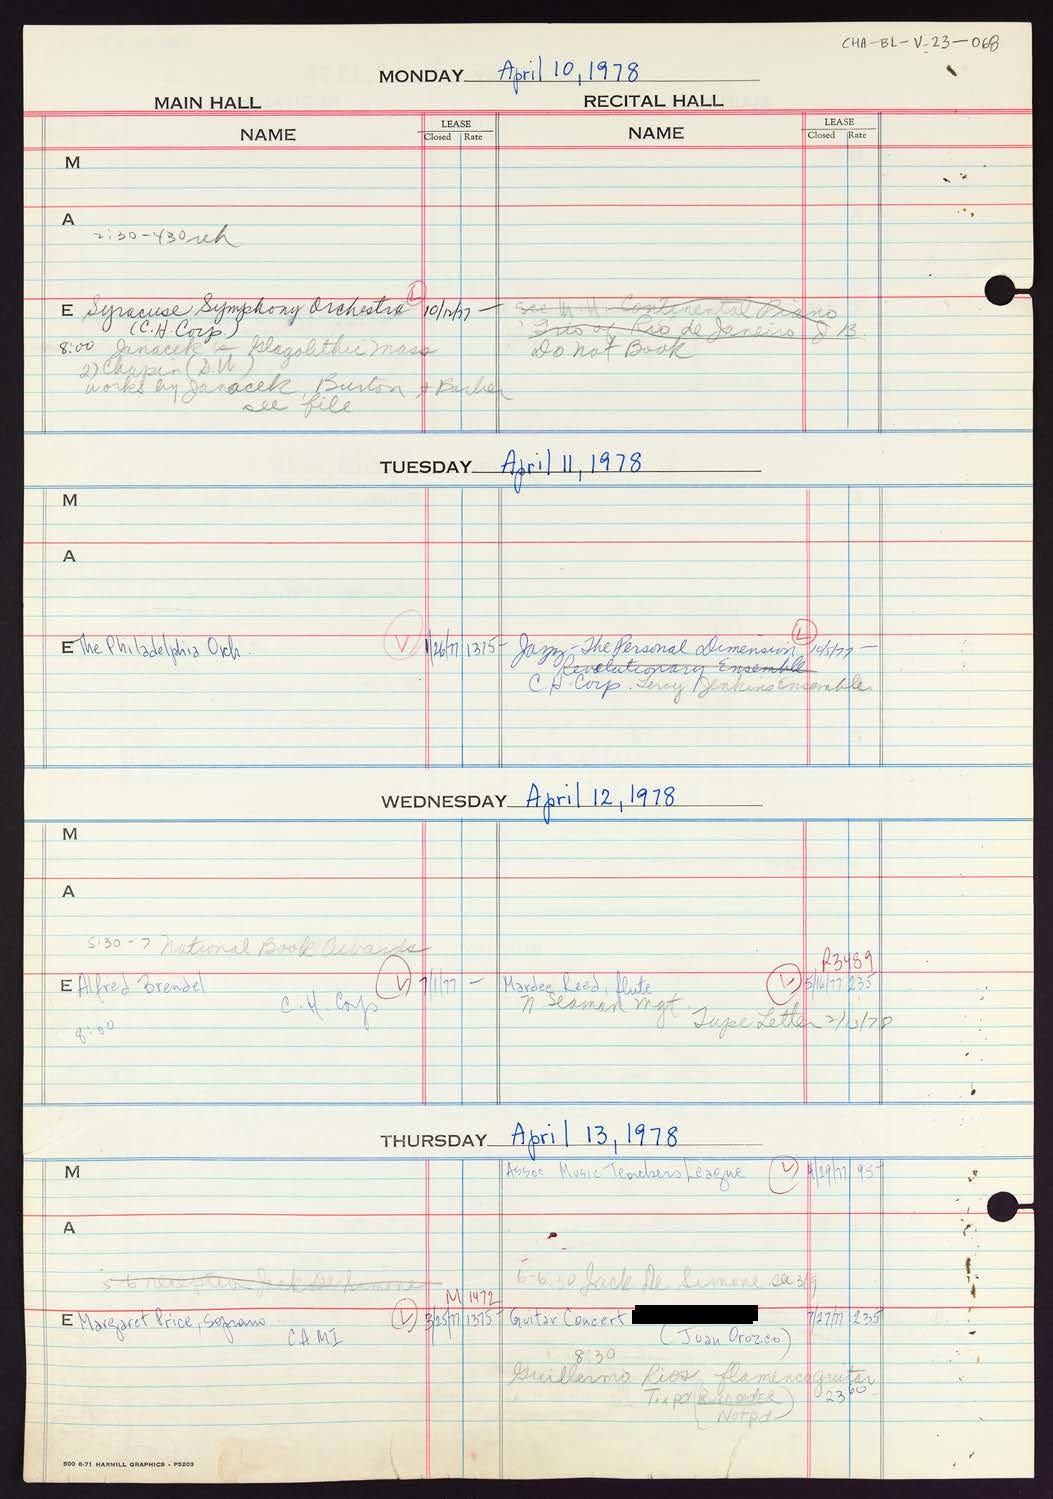 CHA-BL-V-23-068
MONDAY April 10, 1978
MAIN HALL
RECITAL HALL
NAME
LEASE
Closed Rate
NAME
LEASE
Closed Rate
M
A
2:30-430 reh
E Syracuse Symphony Orchestra L 10/12/77 —
(C.H. Corp.)
8:00 Janacek Glagolithic Mass
2) Chapin (D.W.)
works by Janacek, Burton & Barber
see file
see M.H. Continental Piano
Trio of Rio de Janeiro
Do Not Book
TUESDAY April 11, 1978
M
A
E The Philadelphia Orch. V 1/26/77 1375-
Jazz - The Personal Dimension L 10/5/77 —
Revolutionary Ensemble
C.H. Corp. Leroy Jenkins Ensemble
WEDNESDAY April 12, 1978
M
A
5:30-7 National Book Awards
R3489
E Alfred Brendel V 7/1/77 —
C.H. Corp
8:00
Mardee Reed, flute V 5/16/77 235
N Seaman Mgt.
Tape Letter 2/13/78
THURSDAY April 13, 1978
M
Assoc Music Teachers League V 4/29/77 95-
A
5-6 reception Jack De Simone
6-6:30 Jack De Simone
M 1472
E Margaret Price, Soprano V 3/25/77 1375-
CAMI
Guitar Concert 7/27/77 235
(Juan Orozco)
8:30
Guillermo Rios, flamenco guitar
Tape
23
(Not pd)
500 6-71 HARMILL GRAPHICS - P5203